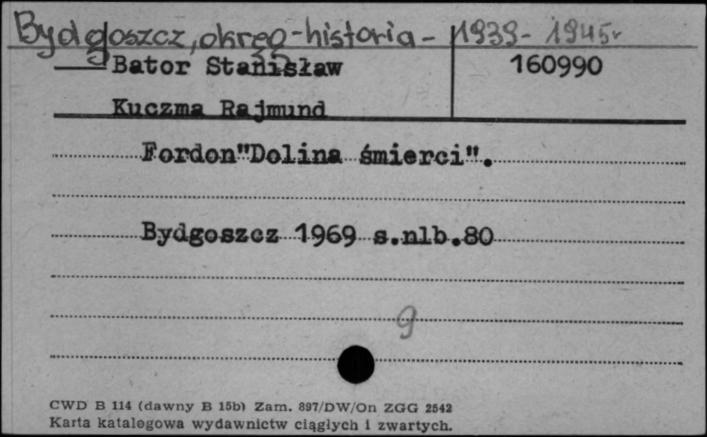 Bydgoszcz, okręg - historia - 1939 - 1945r
Bator Stanisław 160990
Kuczma Rajmund
Fordon"Dolina śmierci".
Bydgoszcz 1969 s.nlb.80
9
CWD B 114 (dawny B 15b) Zam. 897/DW/On ZGG 2542
Karta katalogowa wydawnictw ciągłych i zwartych.